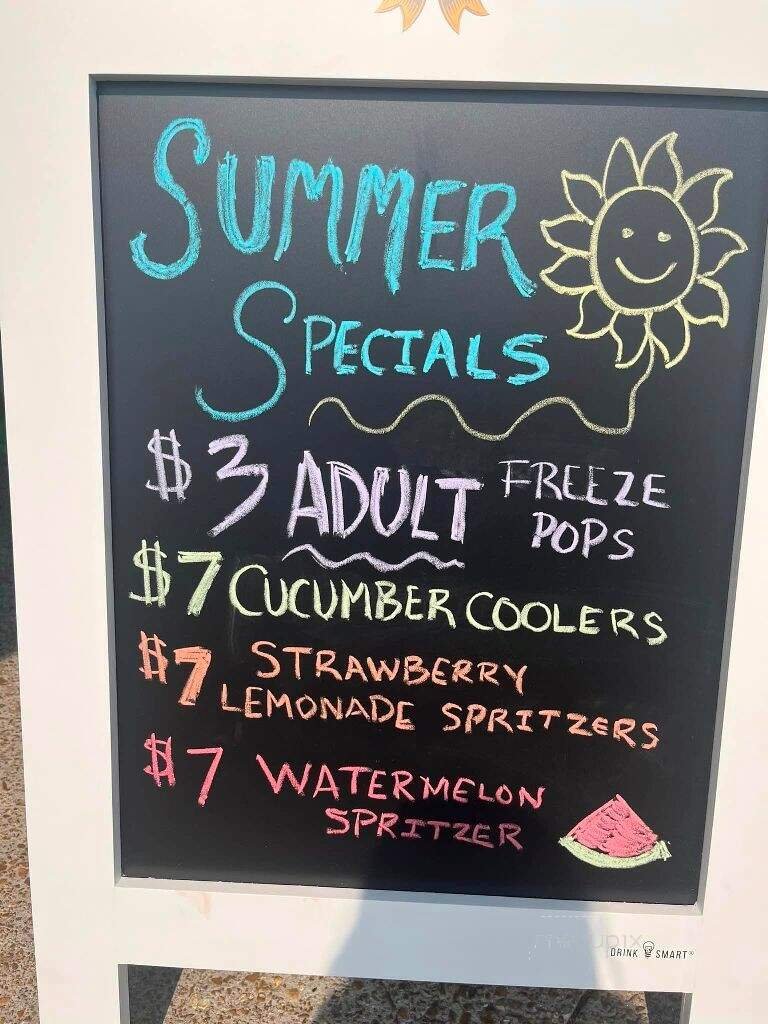 SUMMER
SPECIALS
$3 ADULT FREEZE
POPS
$7 CUCUMBER COOLERS
$7 STRAWBERRY
LEMONADE SPRITZERS
$7 WATERMELON
SPRITZER
DRINK SMART®